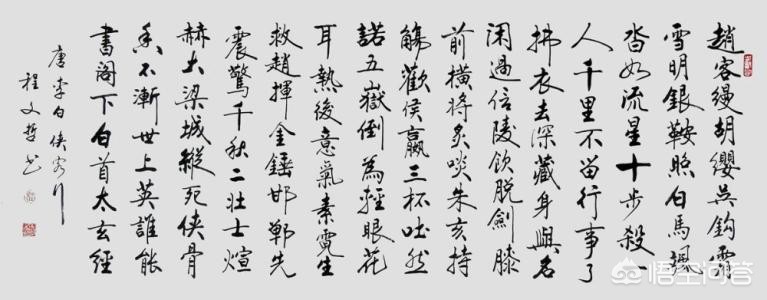 趙客縵胡纓吳鉤霜
雪明銀鞍照白馬颯
沓如流星十步殺一
人千里不留行事了
拂衣去深藏身與名
閑過信陵飲脫劍膝
前橫將炙啖朱亥持
觴勸侯嬴三杯吐然
諾五嶽倒為輕眼花
耳熱後意氣素霓生
救趙揮金錘邯鄲先
震驚千秋二壯士煊
赫大梁城縱死俠骨
香不慚世上英誰能
書閣下白首太玄經
唐李白俠客行
程文哲書
悟空问答